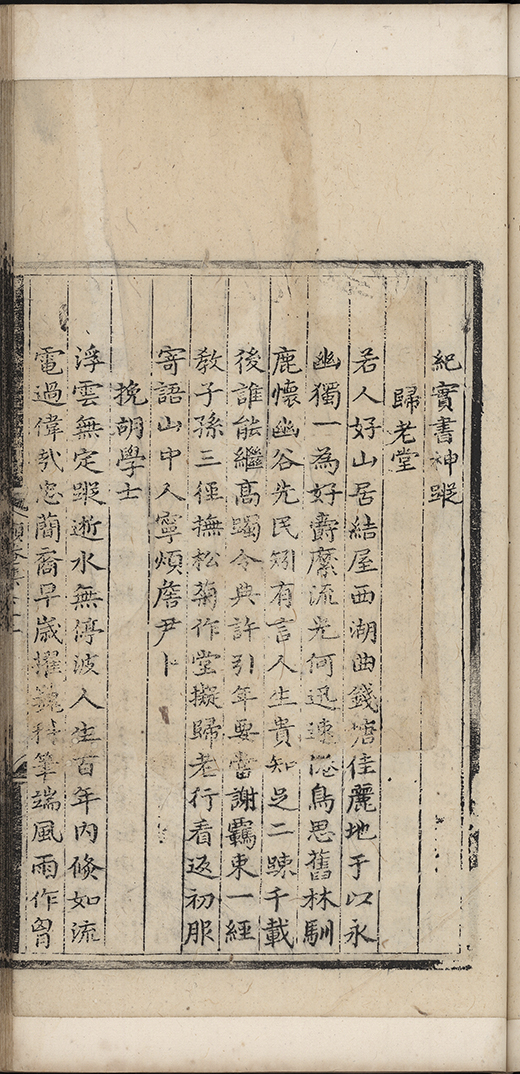 紀實書神蹤
歸老堂
若人好山居結屋西湖曲錢塘佳麗地于以永
幽獨一為好爵縻流光何迅速𣺌鳥思舊林馴
鹿懷幽谷先民矧有言人生貴知足二踈千載
後誰能繼高躅令典許引年要當謝羈束一經
教子孫三徑撫松菊作堂擬歸老行看返初服
寄語山中人寧煩詹尹卜
挽胡學士
浮雲無定蹤逝水無停波人生百年內倐如流
電過偉㢤忠簡裔早歲擢巍科筆端風雨作胷